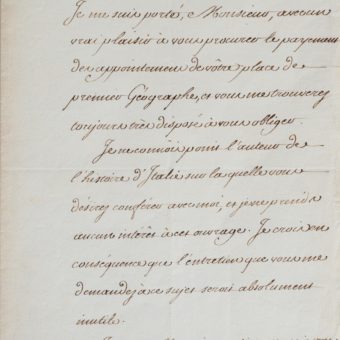 Je me suis porté, Monsieur, avec un
vrai plaisir à vous procurer le payement
des appointemens de vôtre place de
premier Géographe, et vous me trouverez
toujours très disposé à vous obliger.
Je ne connois point l'auteur de
l'histoire d'Italie sur la quelle vous
désirez conférer avec moi, et je ne prends
aucun intérêt à cet ouvrage. Je crois en
conséquence que l'entretien que vous me
demandez à ce sujet seroit absolument
inutile.